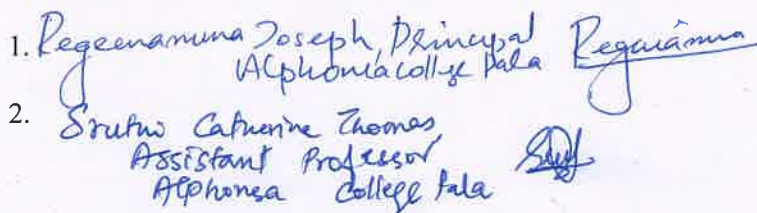 1. Regeenamma Joseph, Principal
Alphonsa College Pala
2. Sruthi Catherine Thomas
Assistant Professor
Alphonsa College Pala